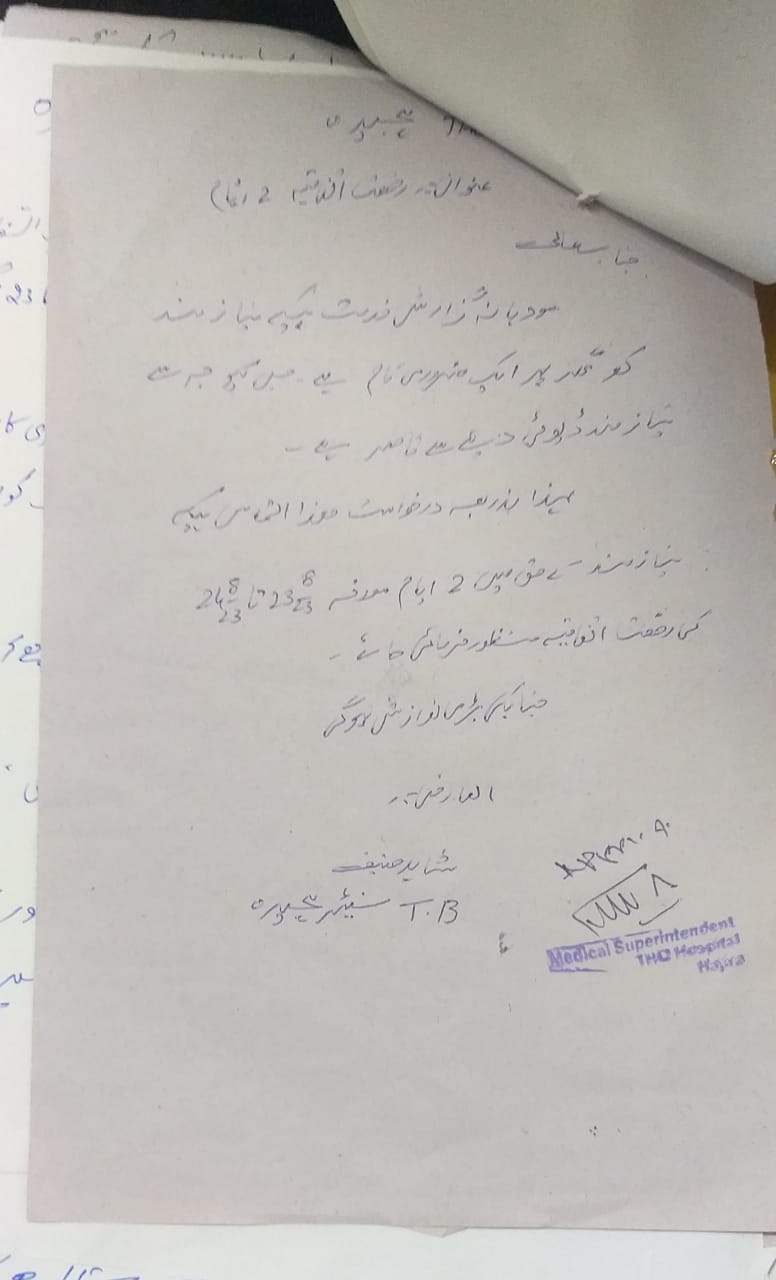 THQ ہجیرہ
عنوان:۔ رخصت اتفاقیہ 2 ایام
جناب عالی
مودبانہ گزارش خدمت ہیکہ نیازمند
کو گھر پر ایک ضروری کام ہے۔ جس کیوجہ سے
نیازمند ڈیوٹی دینے سے قاصر ہے ۔
لہذا بذریعہ درخواست ھذا التماس ہیکہ
نیازمند کے حق میں 2 ایام مورخہ 23 8/23 تا 24 8/23
کی رخصت اتفاقیہ منظور فرمائی جائے ۔
جناب کی بڑی نوازش ہوگی
العارض:۔
شاہد حنیف
T.B سنیٹر ہجیرہ
Medical Superintendent
THQ Hospital
Hajira